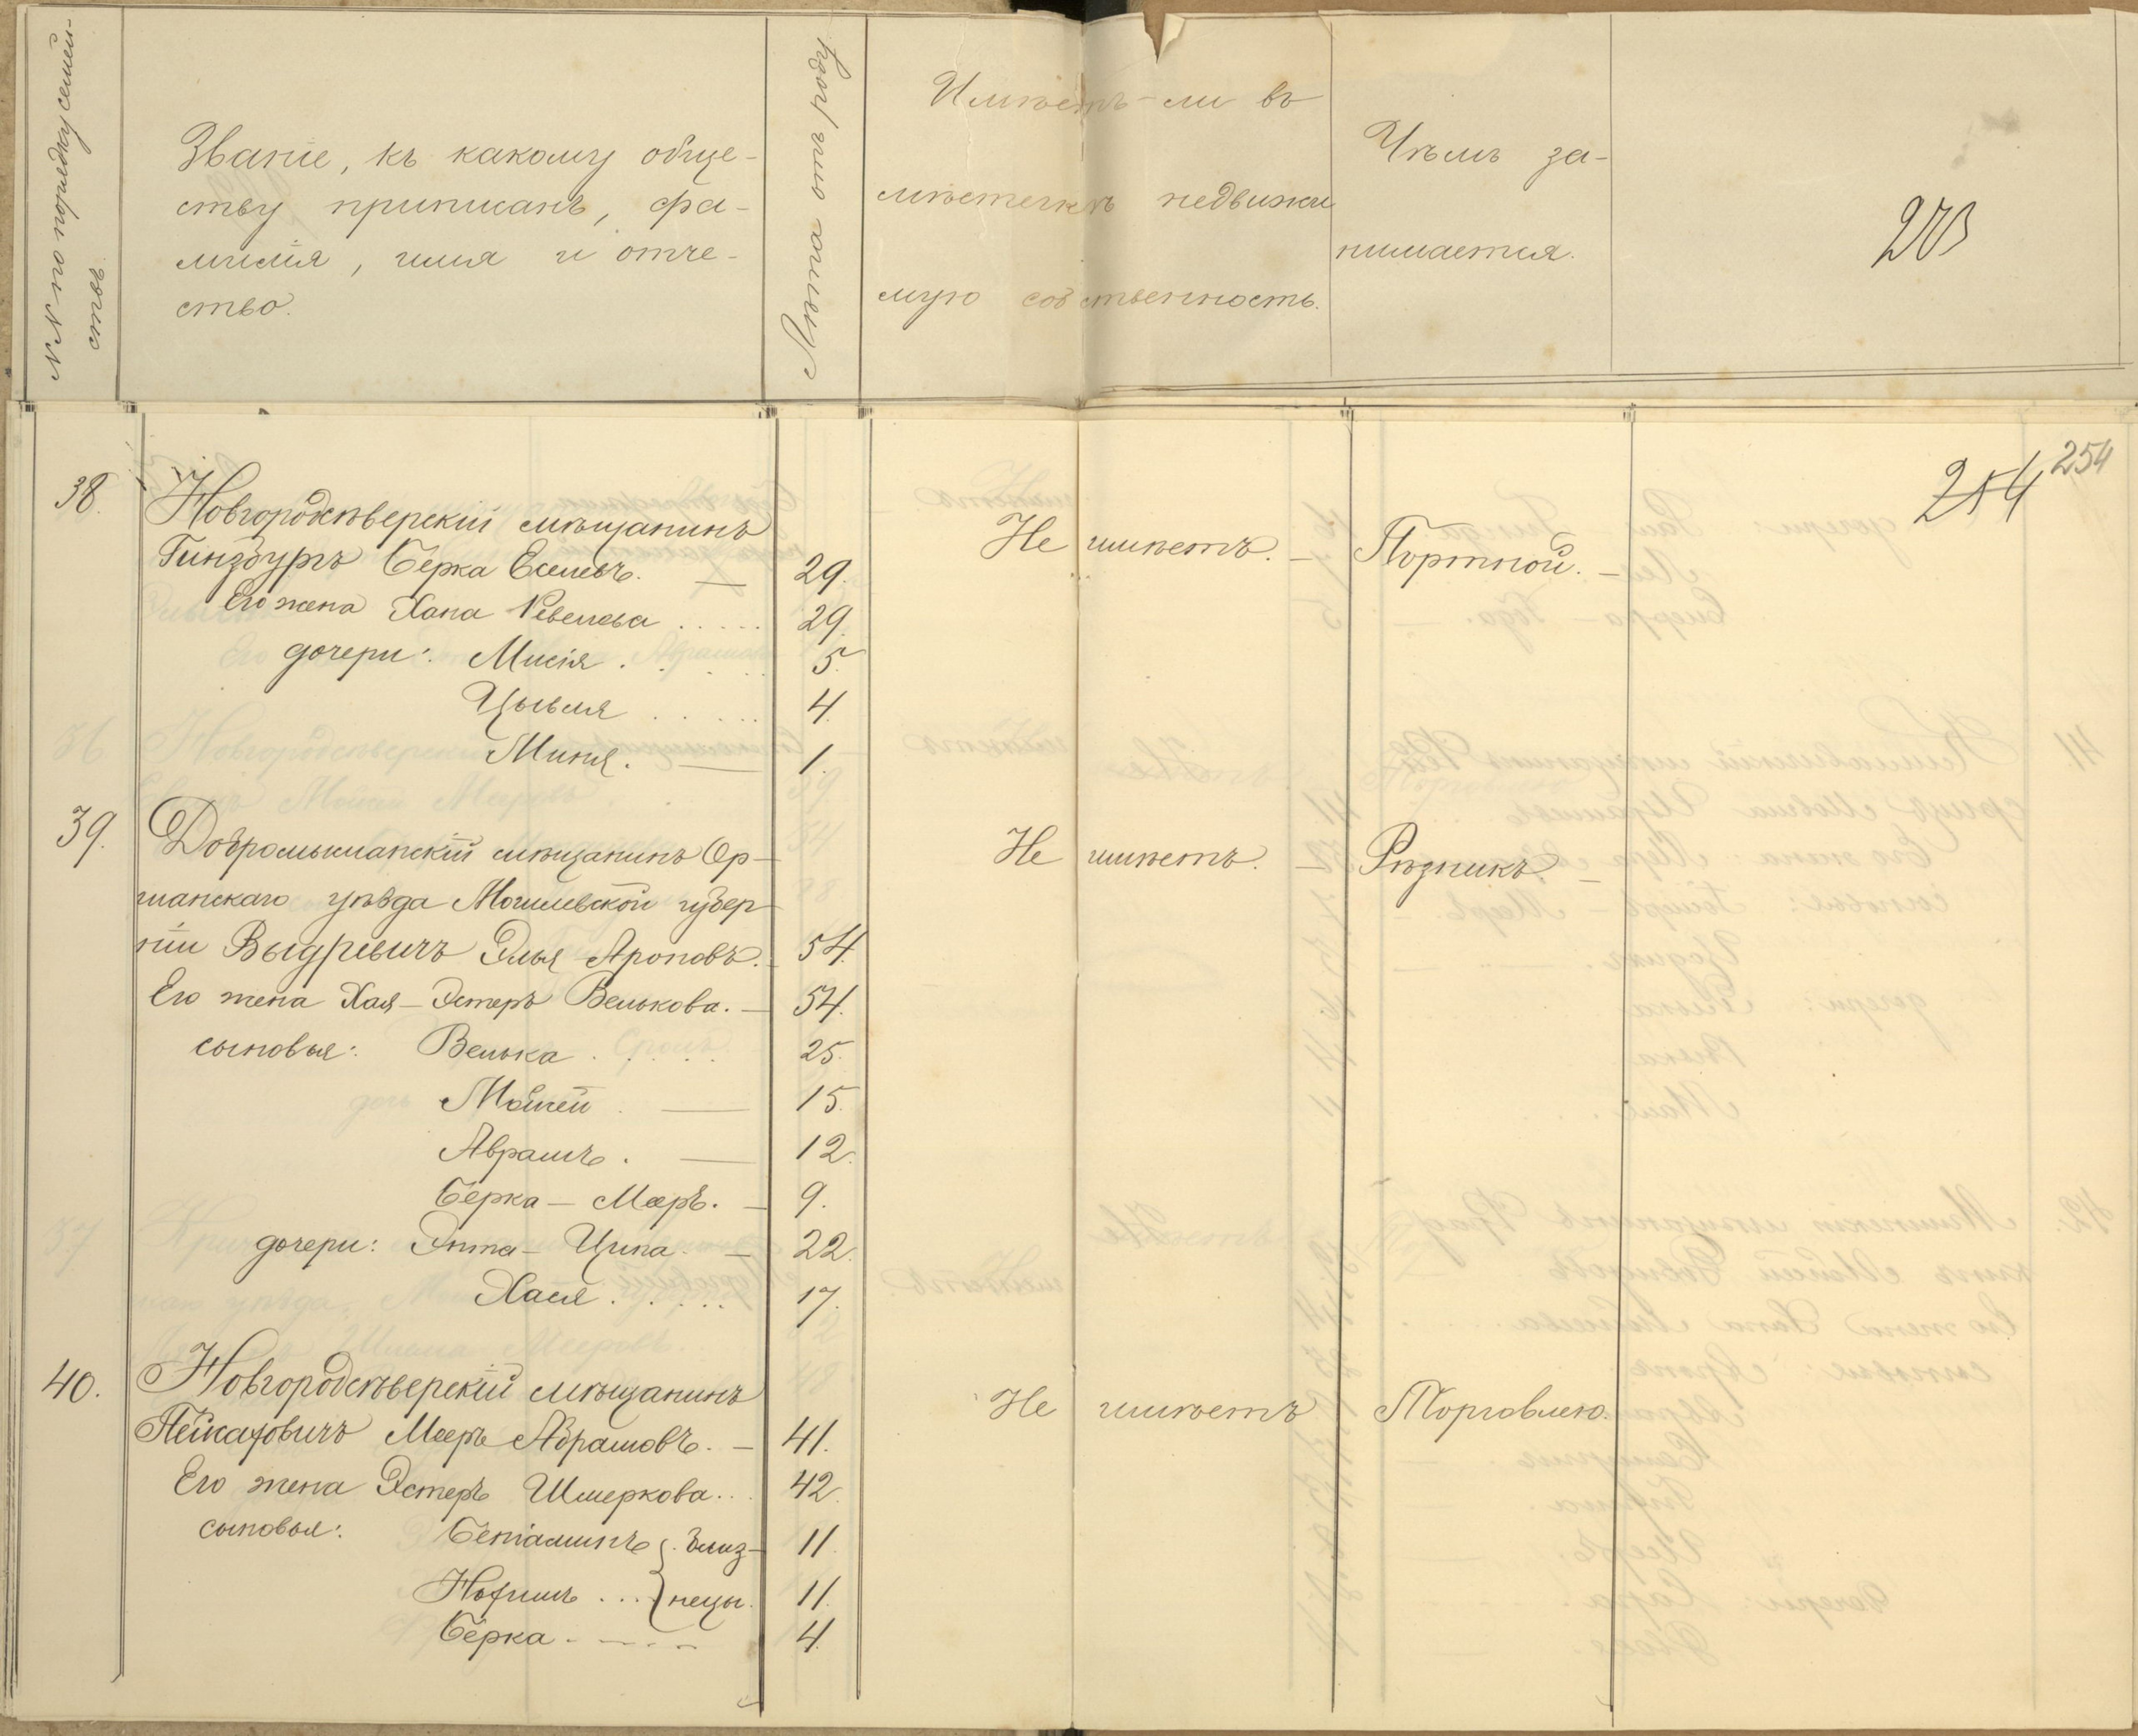 №№ по порядку семей-
ствъ
Званіе, къ какому обще-
ству приписанъ, фа-
милія, имя и отче-
ство.
Лѣта отъ роду
Имѣетъ-ли въ
мѣстечкѣ недвижи
мую собственность.
Чѣмъ за-
нимается.
203
254
254
38.
Новгородсѣверскій мѣщанинъ
Гинзбургъ Берка Еселевъ. — 29.
Его жена Хана Ревелева ..... 29.
дочери: Мисія ..... 5.
Цывля ..... 4.
Миня. — 1.
Не имѣетъ. —
Портной. —
39.
Добромыслянскій мѣщанинъ Ор-
шанскаго уѣзда Могилевской губер-
ніи Выдревичъ Элья Ароновъ. 54.
Его жена Хая-Эстеръ Велькова. — 54.
сыновья: Велька ..... 25.
Мойсей — 15.
Абрамъ. — 12.
Берка-Мееръ. — 9.
дочери: Энта-Ципа. — 22.
Хася ..... 17.
Не имѣетъ. —
Рѣзникъ. —
40.
Новгородсѣверскій мѣщанинъ
Мееръ Абрамовъ. — 41.
Его жена Эстеръ Шмеркова... 42.
сыновья: Беніаминъ }. близ- 11.
Нохимъ ... } нецы. 11.
Берка ..... 4.
Не имѣетъ
Торговлею.